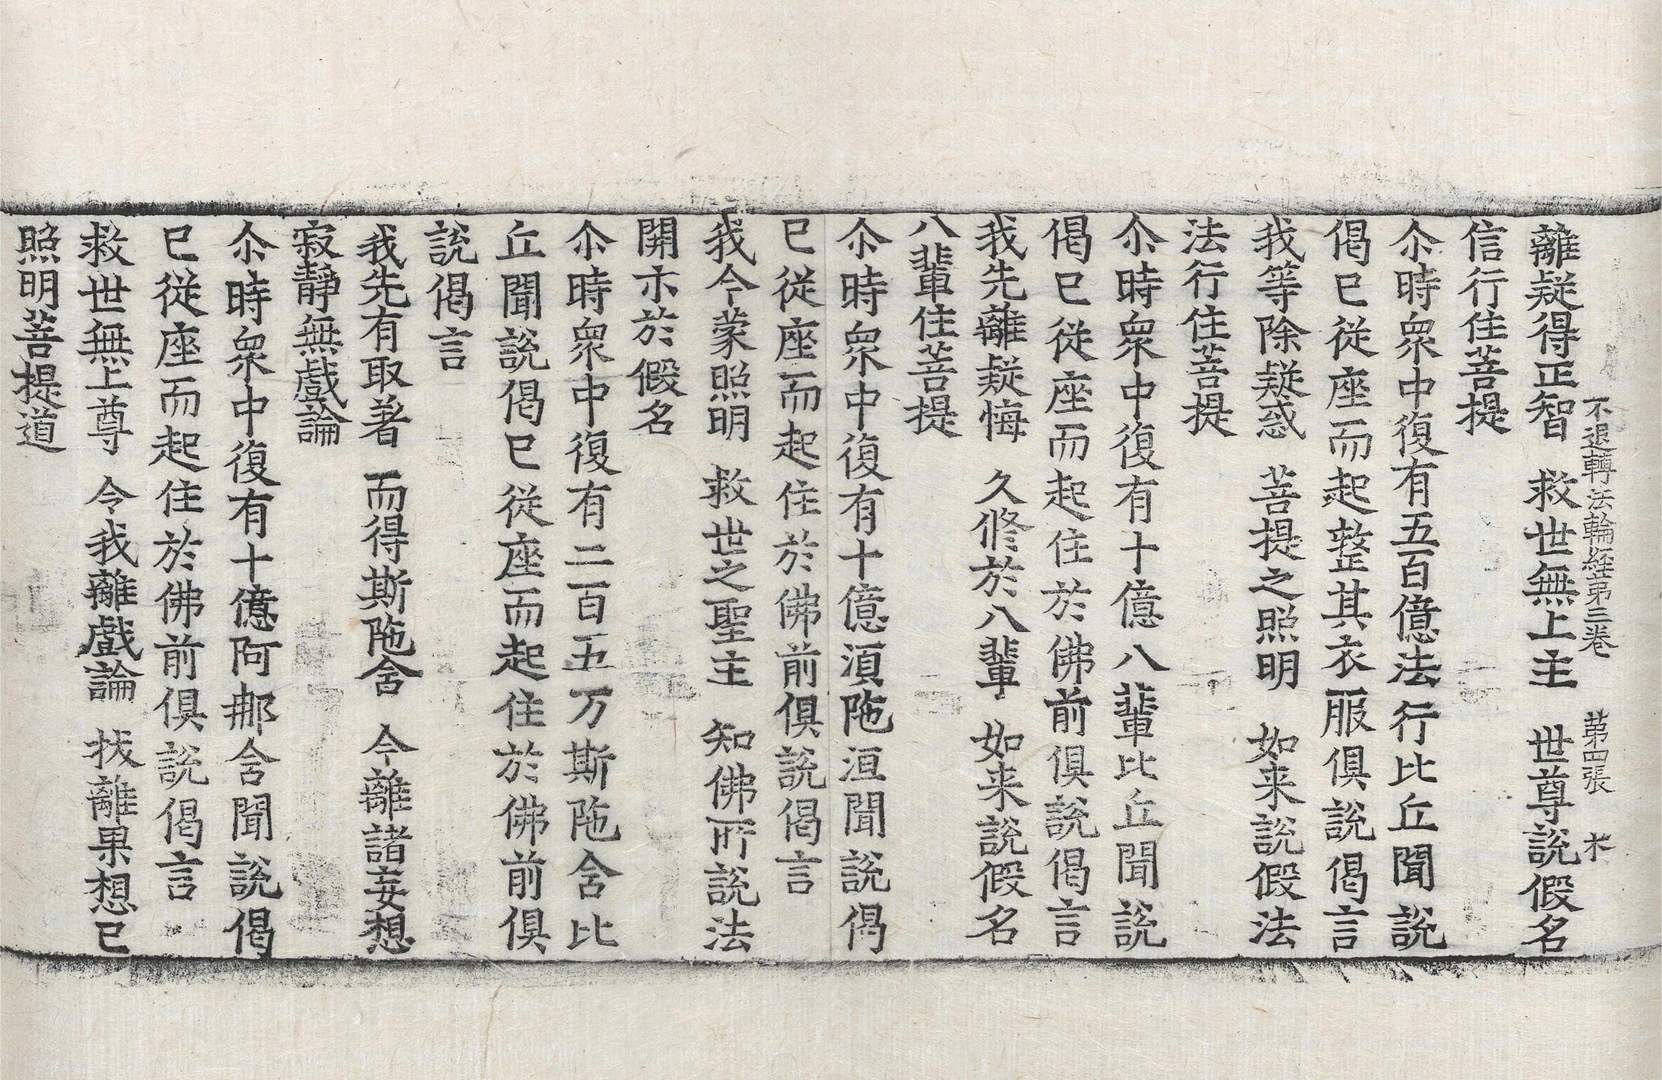 不退轉法輪経第三巻 第四張 木
離疑得正智 救世無上主 世尊說假名
信行住菩提
尒時眾中復有五百億法行比丘聞說
偈已從座而起整其衣服俱說偈言
我等除疑惑 菩提之照明 如来說假法
法行住菩提
尒時眾中復有十億八輩比丘聞說
偈已從座而起住於佛前俱說偈言
我先離疑悔 久修於八輩 如来說假名
八輩住菩提
尒時眾中復有十億湏陁洹聞說偈
已從座而起住於佛前俱說偈言
我今蒙照明 救世之聖主 知佛所說法
開示於假名
尒時眾中復有二百五万斯陁含比
丘聞說偈已從座而起住於佛前俱
說偈言
我先有取著 而得斯陁含 今離諸妄想
寂靜無戲論
尒時眾中復有十億阿那含聞說偈
已從座而起住於佛前俱說偈言
救世無上尊 令我離戲論 拔離果想已
照明菩提道